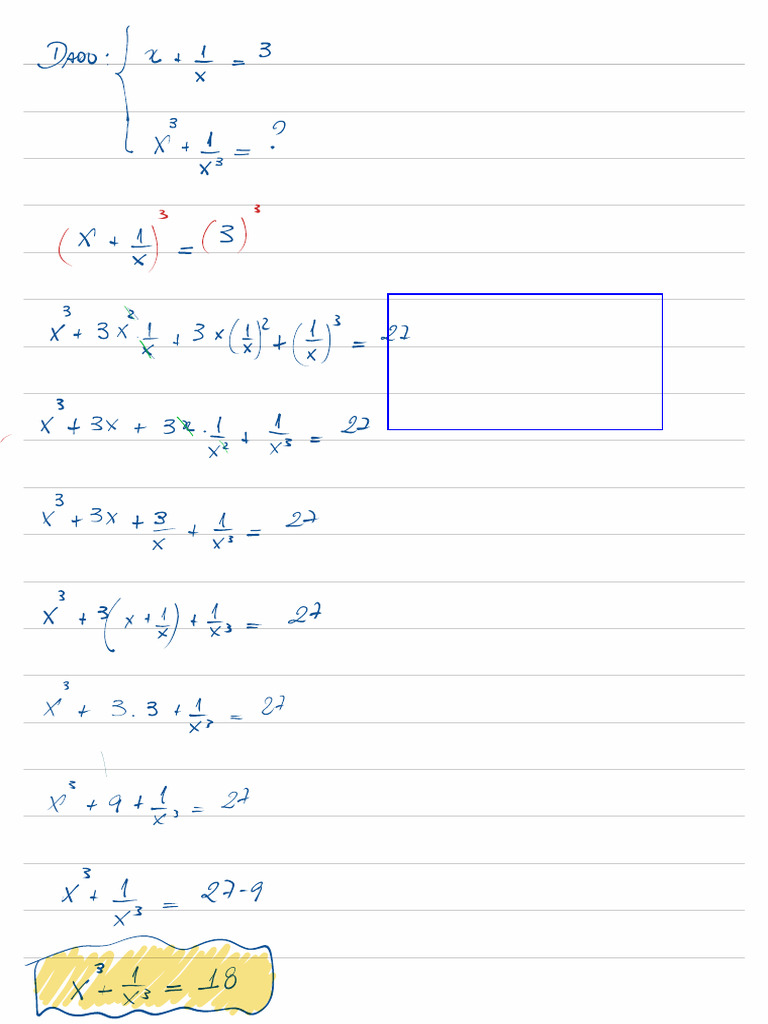 DADO: { x + 1/x = 3
x³ + 1/x³ = ?
(x + 1/x)³ = (3)³
x³ + 3x² · 1/x + 3x(1/x)² + (1/x)³ = 27
x³ + 3x + 3x · 1/x² + 1/x³ = 27
x³ + 3x + 3/x + 1/x³ = 27
x³ + 3(x + 1/x) + 1/x³ = 27
x³ + 3.3 + 1/x³ = 27
x³ + 9 + 1/x³ = 27
x³ + 1/x³ = 27-9
x³ + 1/x³ = 18